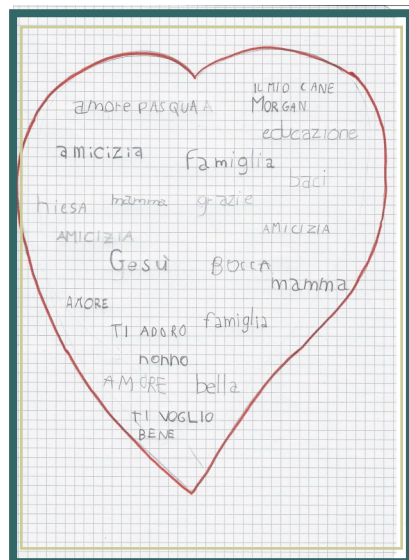 IL MIO CANE
MORGAN
amore PASQUA
educazione
amicizia
famiglia
baci
hiesa mamma grazie
AMICIZIA
AMICIZIA
Gesù BOCCA
mamma
AMORE
famiglia
TI ADORO
nonno
AMORE bella
TI VOGLIO
BENE